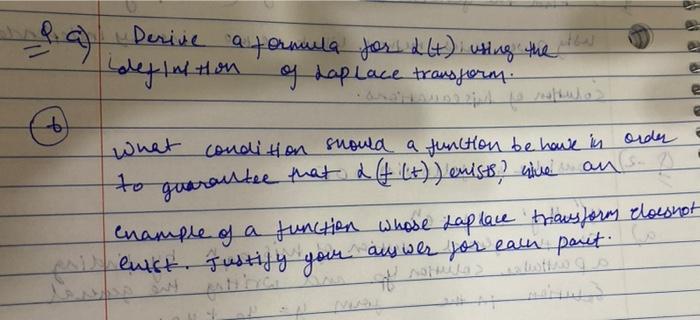 Q. a) Derive a formula for L(t) using the
definition of Laplace transform.
b
What condition should a function behave in order
to guarantee that L(f(t)) exists? Give an
example of a function whose Laplace transform doesnot
exist. Justify your answer for each part.